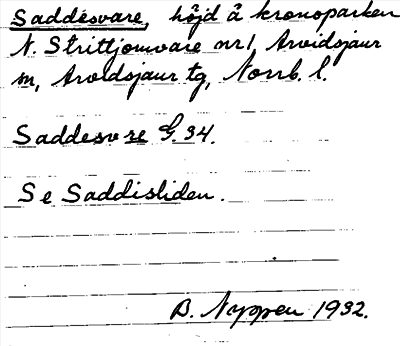 Saddesvare, höjd å kronoparken
N. Strittjomvare nr 1, Arvidsjaur
sn, Arvidsjaur tg, Norrb. l.
Saddesvare G.34.
Se Saddisliden.
B. Nyppen 1932.